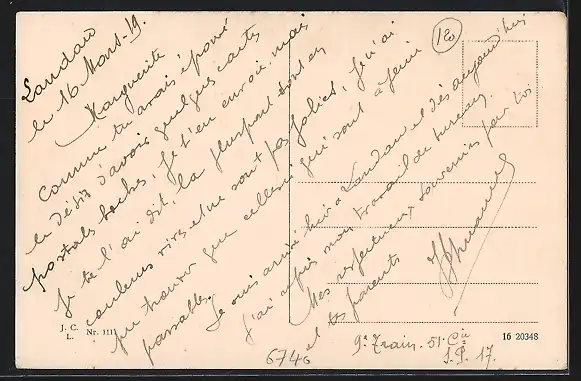 Landau
le 16 Mars-19.
Marguerite
Comme tu avais éprouvé
le désir d'avoir quelques cartes
postales boches, je t'en envoie, mais
je te l'ai dit, la plupart sont en
couleurs vives et ne sont pas jolies, je n'ai
pu trouver que celle-ci qui soit à peu près
passable.
Je suis arrivé hier à Landau et dès aujourd'hui
j'ai repris mon travail de bureau.
Mes respectueux souvenirs pour toi
et tes parents
120
J. C.
L.
Nr. 111
16 20348
6746
9e Train - 51e Cie
S.P. 17.